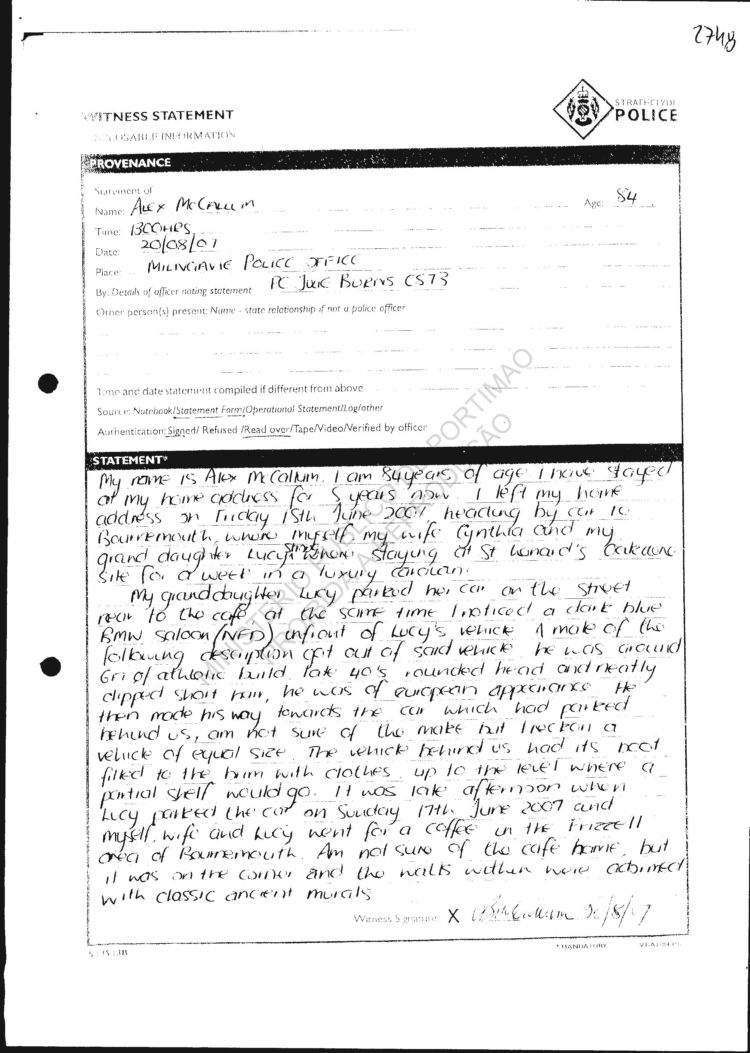 2748
WITNESS STATEMENT
STRATHCLYDE
POLICE
DISCLOSABLE INFORMATION
PROVENANCE
Statement of
Name: ALEX McCALLUM Age: 84
Time: 1300HRS
Date: 20/08/07
Place: MILNGAVIE POLICE OFFICE
By: Details of officer noting statement PC JULIE BURNS C573
Other person(s) present: Name - state relationship if not a police officer
Time and date statement compiled if different from above
Source: Notebook/Statement Form/Operational Statement/Log/other
Authentication: Signed/ Refused /Read over/Tape/Video/Verified by officer
STATEMENT*
My name is Alex McCallum. I am 84 years of age. I have stayed
at my home address for 5 years now. I left my home
address on Friday 15th June 2007 heading by car to
Bournemouth, where myself my wife Cynthia and my
grand daughter Lucy where staying at St Lonard's
site for a week in a luxury caravan.
My granddaughter Lucy parked her car on the street
near to the café, at the same time I noticed a dark blue
BMW saloon (NFD) infront of Lucy's vehicle. A male of the
following description got out of said vehicle, he was around
6ft of athletic build, late 40's, rounded head and neatly
clipped short hair, he was of european appearance. He
then made his way towards the car which had parked
behind us, am not sure of the make but I reckon a
vehicle of equal size. The vehicle behind us had its boot
filled to the brim with clothes, up to the level where a
partial shelf would go. It was late afternoon when
Lucy parked the car on Sunday 17th June 2007 and
myself, wife and Lucy went for a coffee in the Frizzell
area of Bournemouth. Am not sure of the café name, but
it was on the corner and the walls within were adorned
with classic ancient murals
Witness Signature: X
* MANDATORY
MINISTÉRIO PÚBLICO - PORTIMÃO
PROIBIDA A REPRODUÇÃO